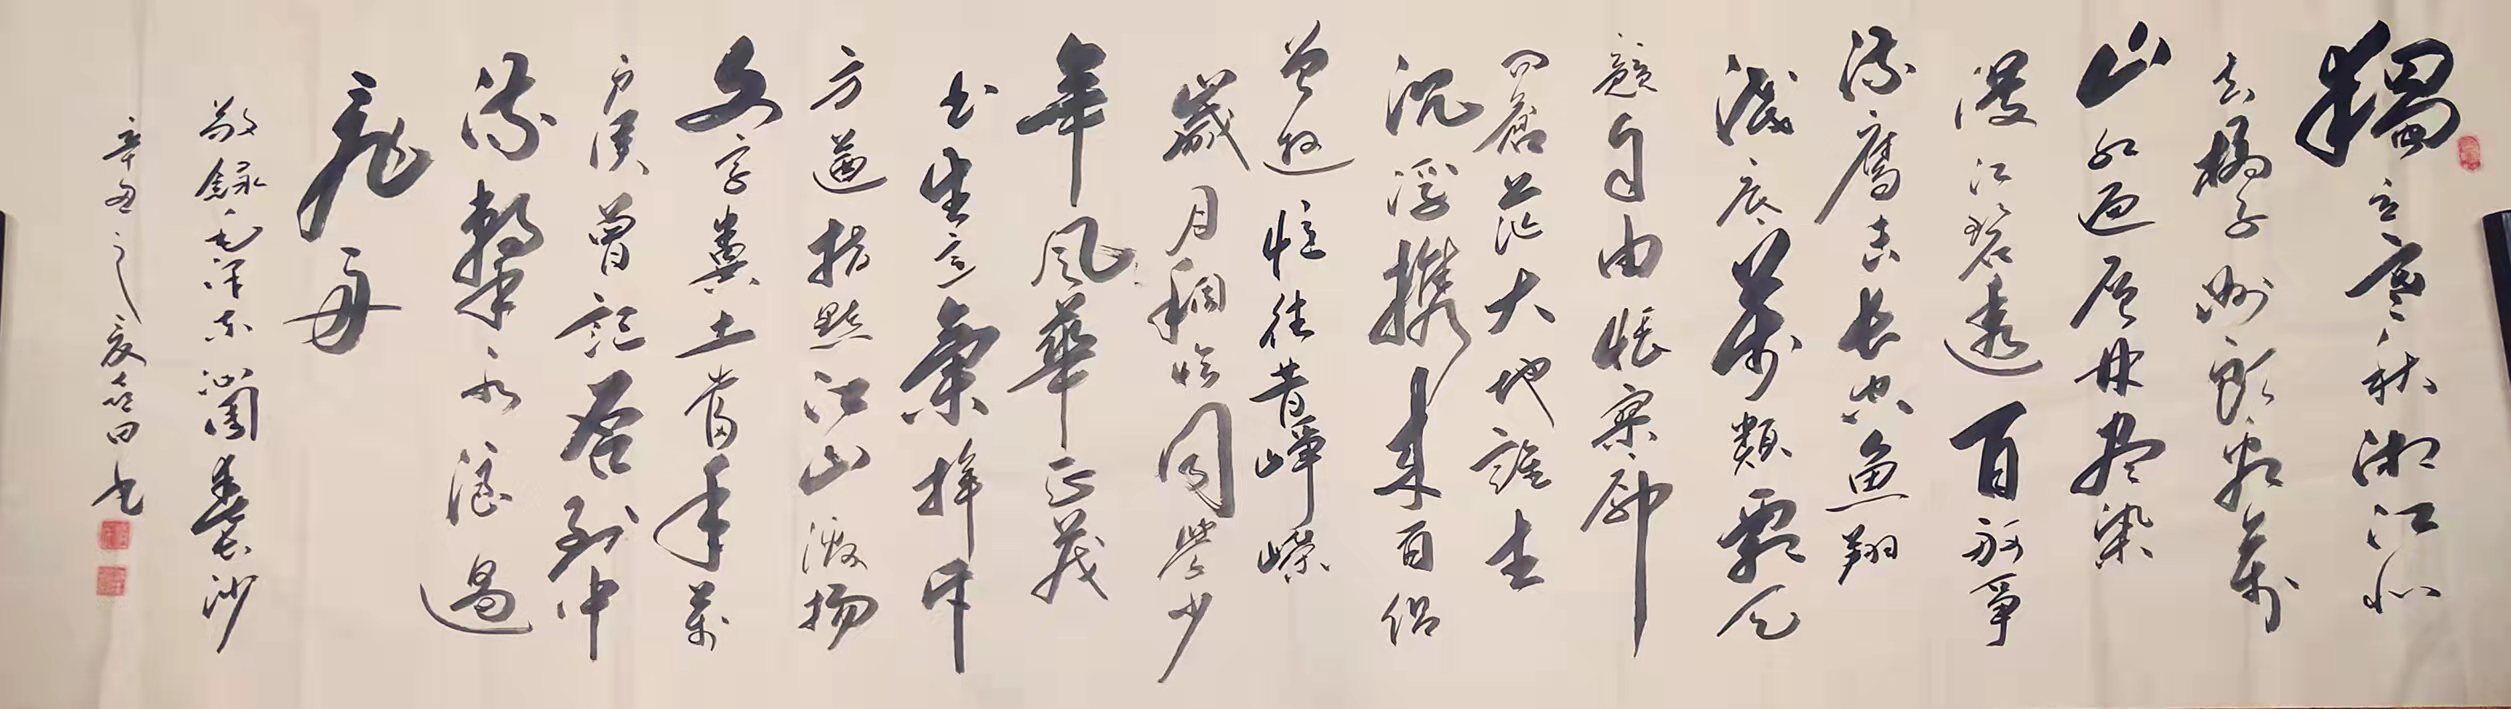 獨立寒秋湘江北
去橘子洲頭看萬
山紅遍层林尽染
漫江碧透百舸爭
流鷹击长空鱼翔
淺底萬類霜天
競自由悵寥廓
问蒼茫大地誰主
沉浮携来百侣
曾遊憶往昔崢嶸
歲月稠恰同學少
年風華正茂
书生意氣揮斥
方遒指點江山激扬
文字糞土當年萬
户侯曾記否到中
流擊水浪遏
飛舟
敬録毛泽东沁園春长沙
辛丑之夏